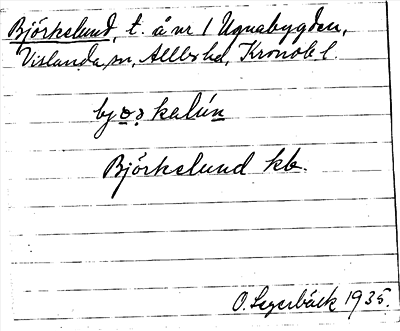 Björkslund, t. å nr 1 Ugnabygden,
Vislanda sn, Allbo hd, Kronob l.
bjo̲ɔ̲skalún̲
Björkslund kb.
O. Segerbäck 1935.